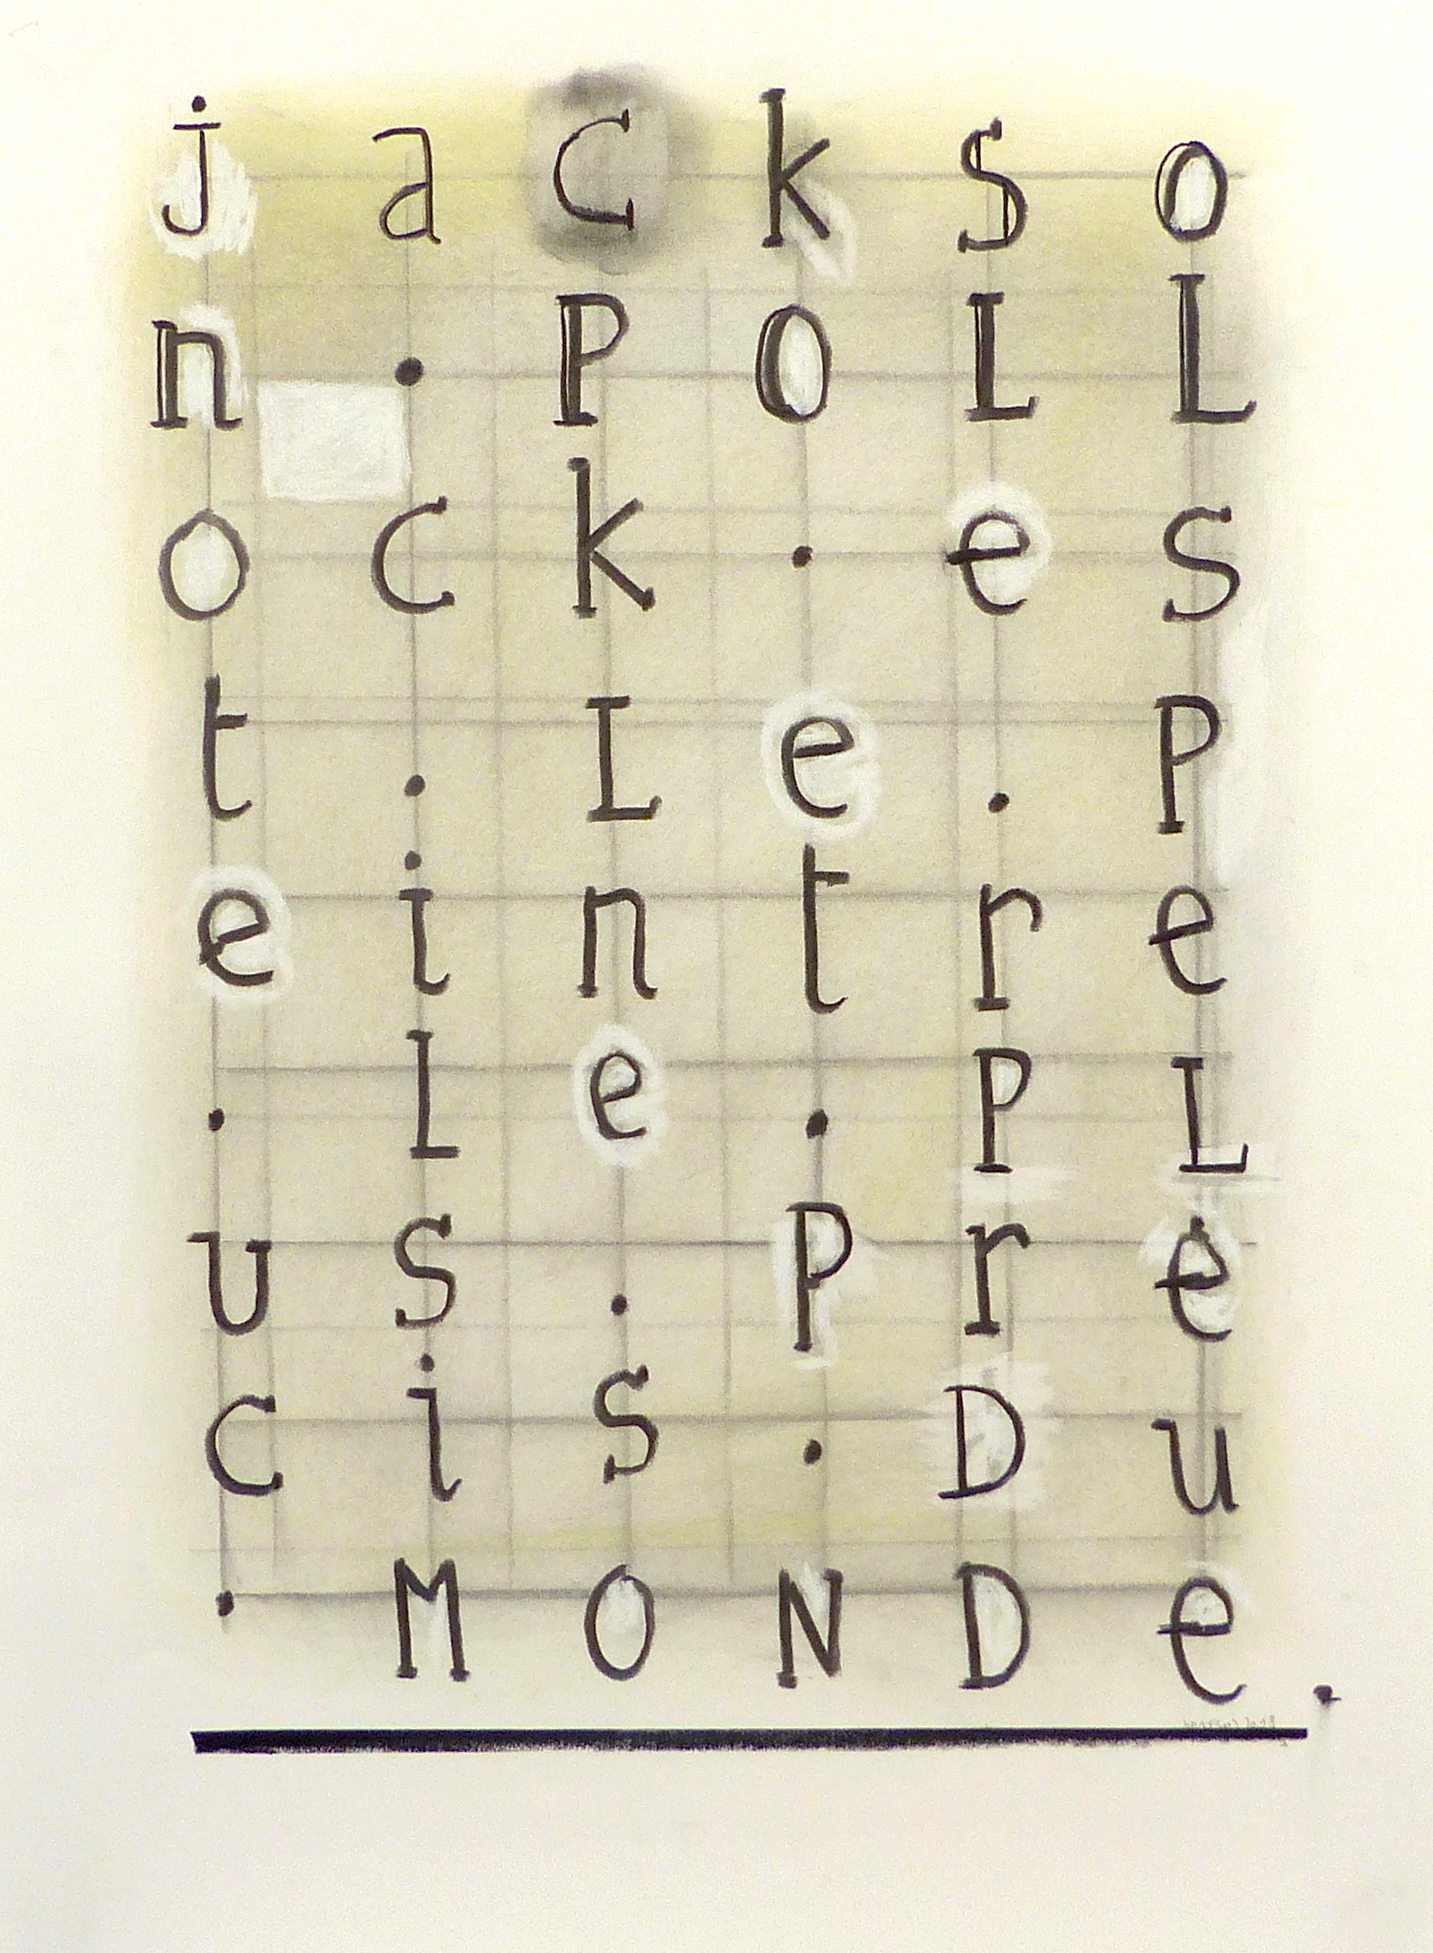 j a c k s o
n . P O L L
o c k . e s
t . L e . P
e i n t r e
. L e . P L
u s . P r e
c i s . D u
. M O N D e .